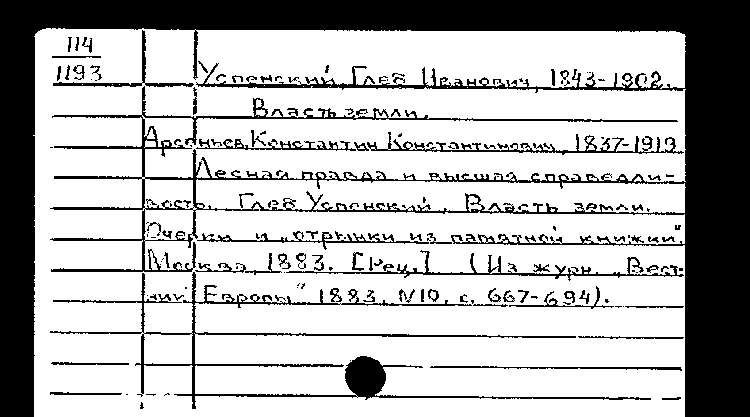 114
1193
Успенский, Глеб Иванович, 1843-1902.
Власть земли.
Арсеньев, Константин Константинович, 1837-1919
Лесная правда и высшая справедли-
вость. Глеб Успенский. Власть земли.
Очерки и „отрывки из памятной книжки".
Москва, 1883. [Рец.] (Из журн. „Вест-
ник Европы" 1883, N10, с. 667-694).